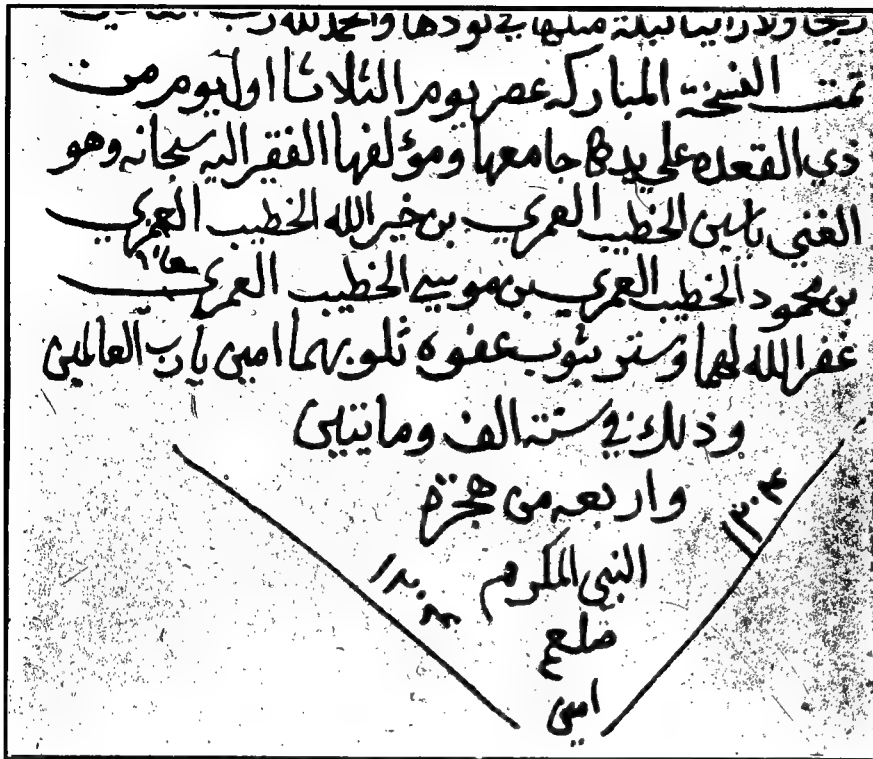 ريحا ولا راينا ليلة مثلها في نودها والحمد لله رب
تمت النسخة المباركه عصر يوم الثلاثا اول يوم من
ذي القعده علي يد جامعها ومؤلفها الفقر اليه سبحانه وهو
الغني ياسين الخطيب العمري بن خير الله الخطيب العمري
بن محمود الخطيب العمري بن موسي الخطيب العمري
غفر الله لهما وستر بثوب عفوه ثلوبهما امين يا رب العالمين
وذلك في سنة الف وماتيين
واربعه من هجرة
النبي المكرم
١٢٠٤
١٢٠٤
صلعم
امين